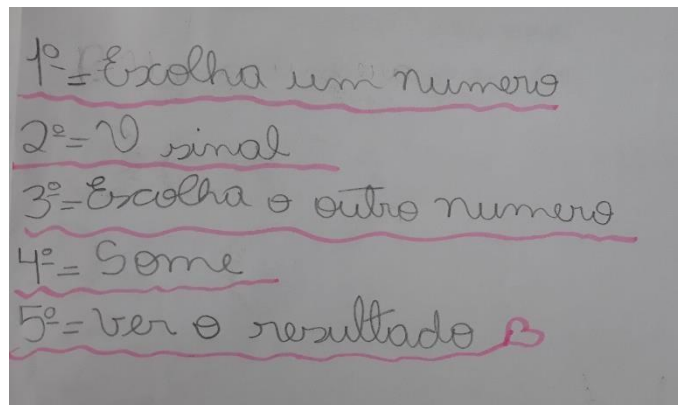 1º= Escolha um numero
2º= O sinal
3º= Escolha o outro numero
4º= Some
5º= Ver o resultado